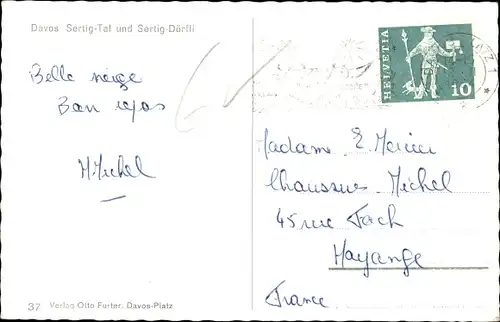 Davos Sertig-Tal und Sertig-Dörfli
Belle neige
Bon repos
M Michel
HELVETIA
10
Madame E. Merier
Chaussures Michel
45 rue Foch
Hayange
France
37 Verlag Otto Furter, Davos-Platz